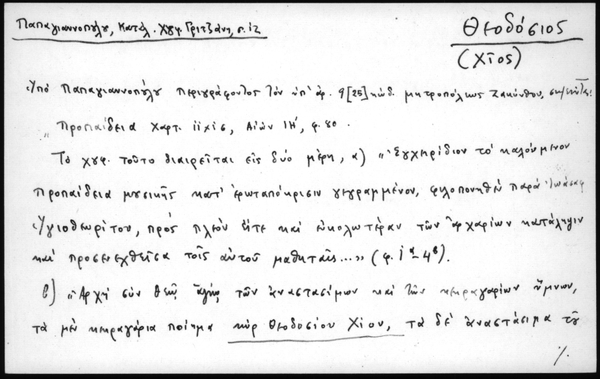 Παπαγιαννοπούλου, Κατάλ. Χφφ. Γριτσάνη, σ. 12
Θεοδόσιος
(Χῖος)
Ὑπὸ Παπαγιαννοπούλου περιγράφοντος τὸν ὑπ' ἀρ. 9 [25] κώδ. μητροπόλεως Ζακύνθου,
"Προπαίδεια χαρτ. Αἰών ΙΗ', φ. 80.
Τὸ χφ. τοῦτο διαιρεῖται εἰς δύο μέρη, α) "Ἐγχειρίδιον τὸ καλούμενον
προπαίδεια μουσικῆς κατ' ἐρωταπόκρισιν γεγραμμένον, φιλοπονηθὲν παρὰ Ἰωάσαφ
Ἁγιοθεωρίτου, πρὸς πλείονα καὶ εὐκολωτέραν τῶν ἀρχαρίων κατάληψιν
καὶ προσενεχθεῖσα τοῖς αὐτοῦ μαθηταῖς..." (φ. 1α - 4β).
β) "Ἀρχὴ σὺν θεῷ ἁγίῳ τῶν ἀναστασίμων καὶ τῶν κεκραγαρίων ὕμνων,
τὰ μὲν κεκραγάρια ποίημα κὺρ Θεοδοσίου Χίου, τὰ δὲ ἀναστάσιμα τοῦ
./.